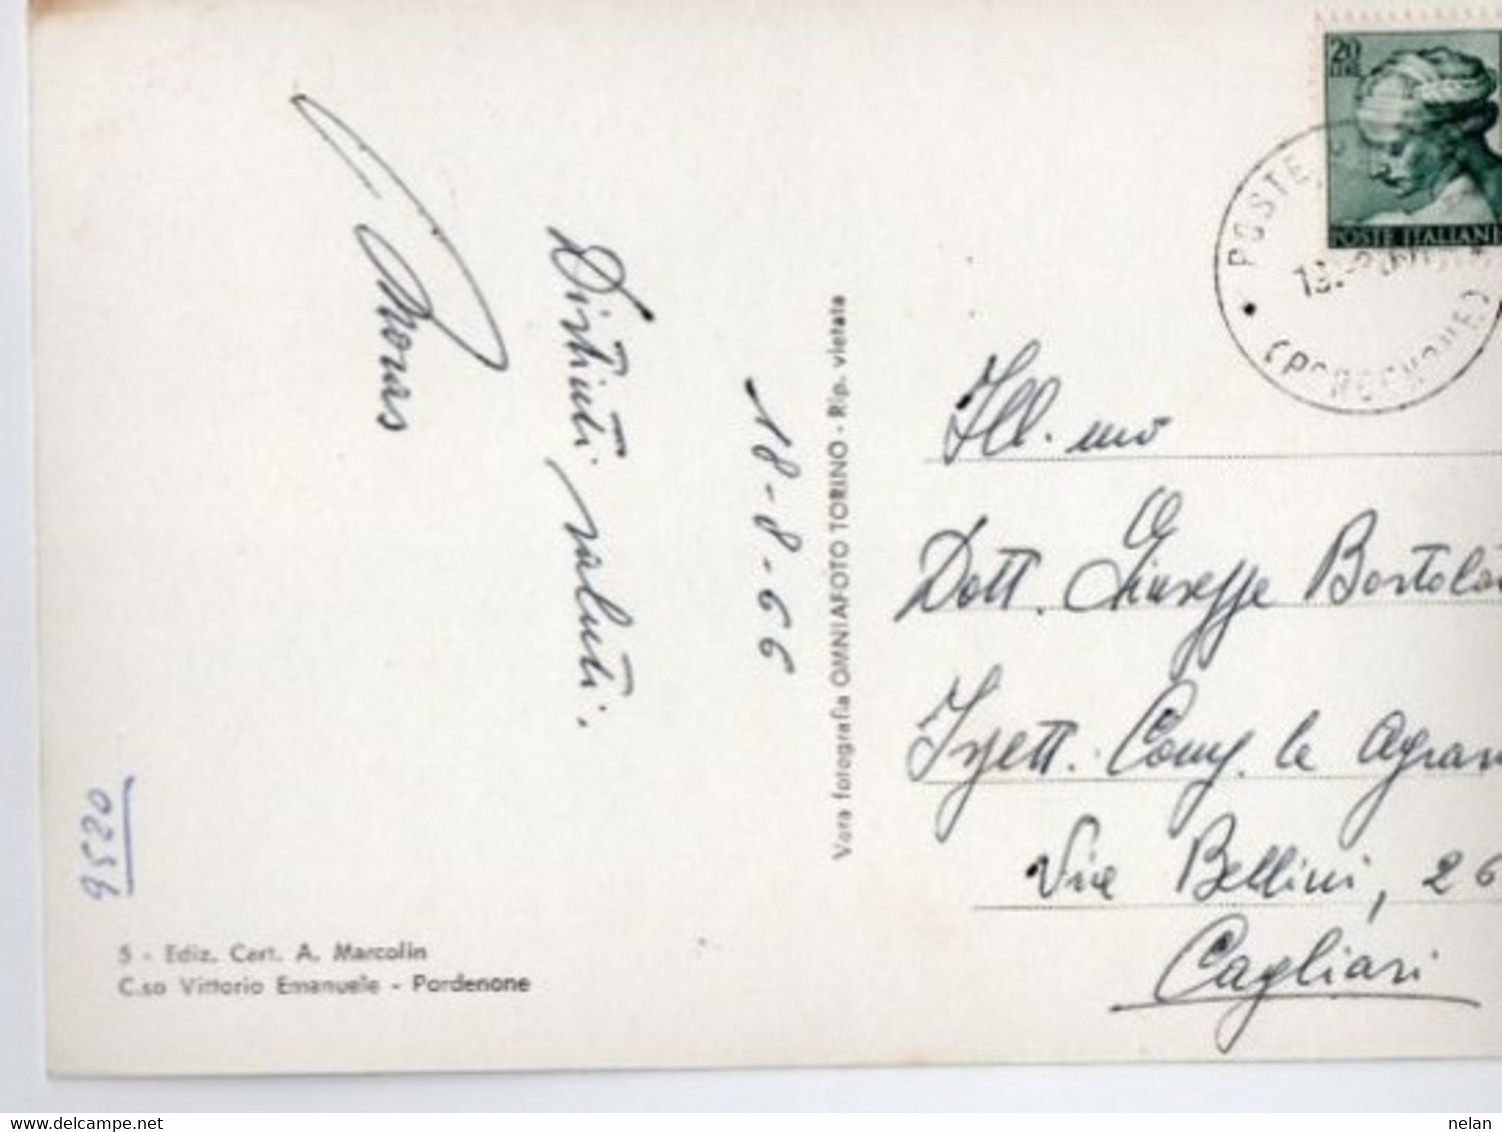 20
LIRE
POSTE ITALIANE
POSTE
(PORDENONE)
18-8-66
Distinti saluti.
Moras
Vera fotografia OMNIAFOTO TORINO - Rip. vietata
Ill.mo
Dott. Giuseppe
Ispett. Comp. le
Via Bellini, 26
Cagliari
9520
5 - Ediz. Cart. A. Marcolin
C.so Vittorio Emanuele - Pordenone
www.delcampe.net
nelan